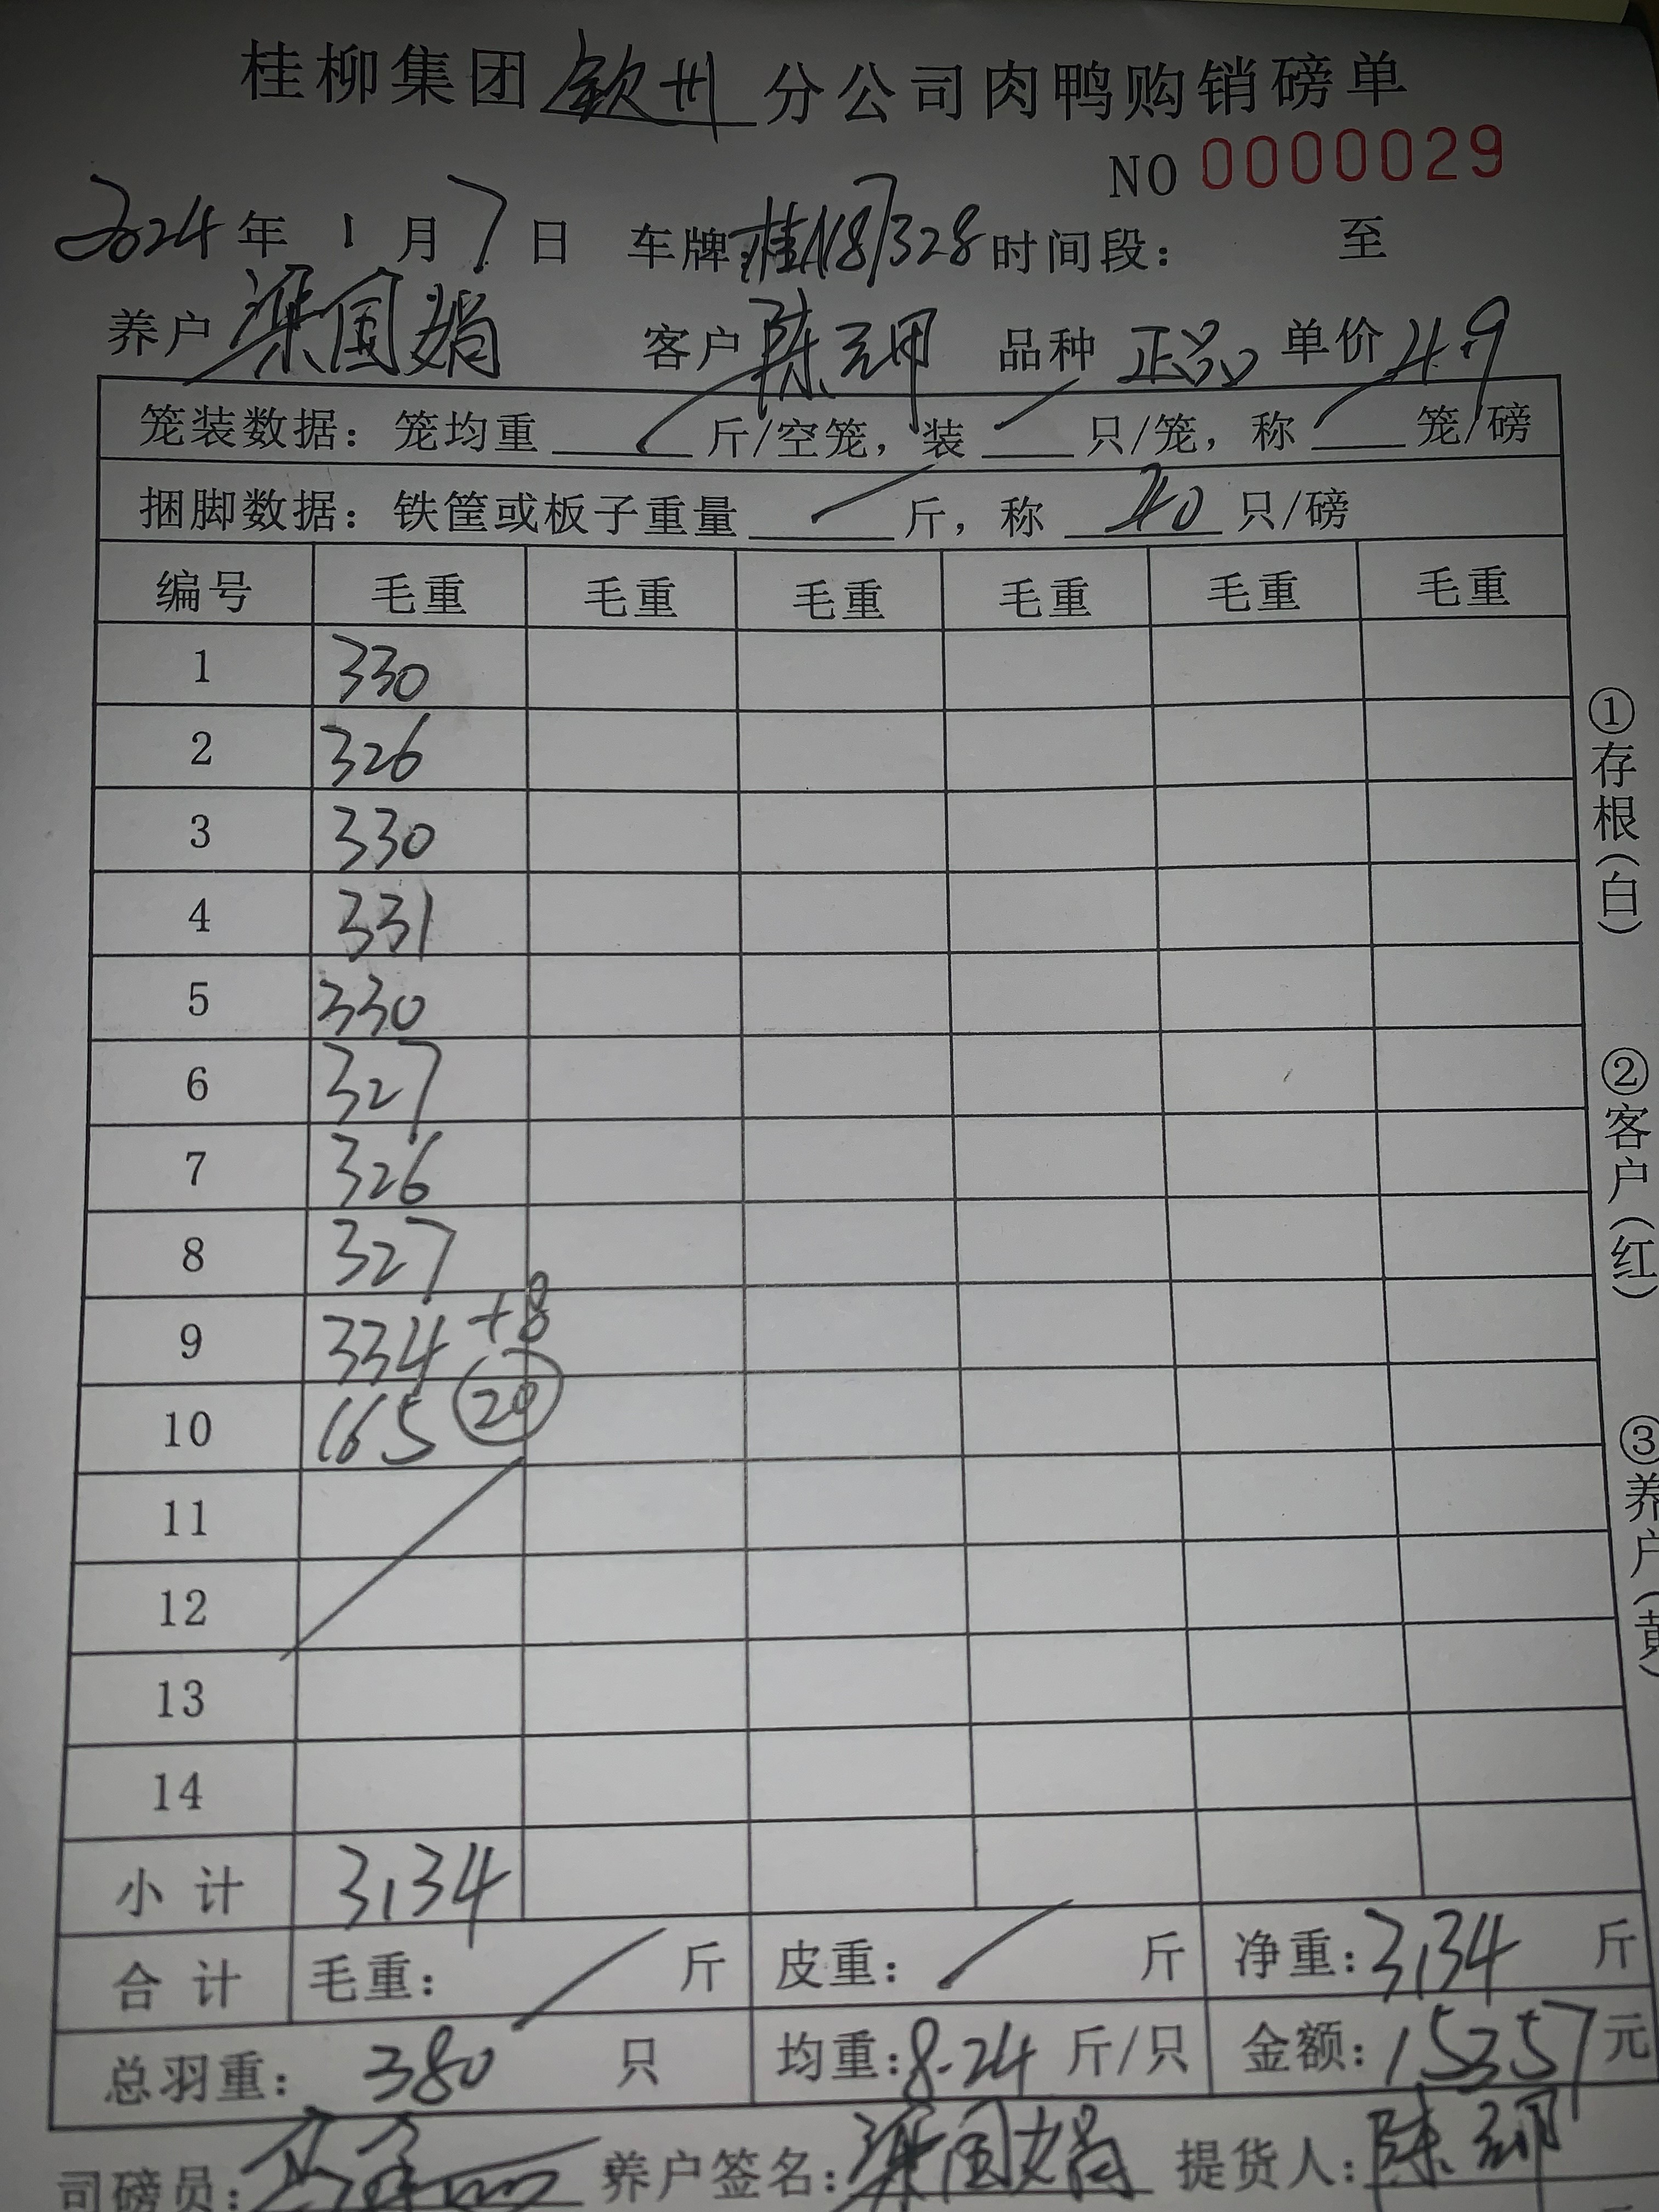 桂柳集团钦州分公司肉鸭购销磅单
NO 0000029
2024年1月7日 车牌:桂N87328 时间段: 至
养户 梁国娟 客户 陈 品种 正品 单价 4.9
笼装数据:笼均重 / 斤/空笼,装 / 只/笼,称 / 笼/磅
捆脚数据:铁筐或板子重量 / 斤,称 40 只/磅
编号 毛重 毛重 毛重 毛重 毛重 毛重
1 330
2 326
3 330
4 331
5 330
6 327
7 326
8 327
9 334 +8
10 165 20
11
12
13
14
小计 3134
合计 毛重: / 斤 皮重: / 斤 净重:3134 斤
总羽重: 380 只 均重:8.24 斤/只 金额:15357元
司磅员: 养户签名:梁国娟 提货人:陈
①存根(白)
②客户(红)
③养户(黄)